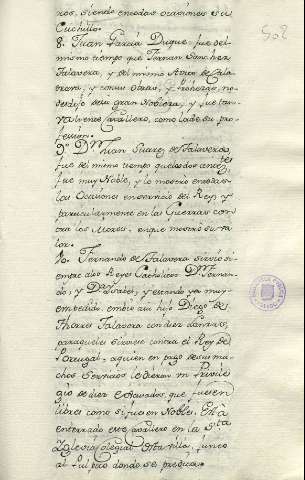 ros, siendo en todas ocasiones su
Cuchillo.
8. Juan Garcia Duque fue del
mismo tiempo que Fernan Sanchez
Talavera, y del mismo Avito de Cala
trava, y con sus Obras, y Prohezas, no
perdio de su gran Nobleza, y fue tan
valeroso Cavallero, como todos de su pro-
fession.
9. Dn. Juan Suarez de Talavera
fue del mismo tiempo que los dos antezes
fue muy Noble, y lo mostro en todas
las Ocasiones en servicio del Rey y
particularmente en las Guerras con
tra los Moros, en que mostro su va
lor.
10. Fernando de Talavera sirvio si-
empre a los Reyes Catholicos Dn. Fernan
do, y Da. Isabel, y estando ya muy
empedido, embio a su hijo Diego de
Talavera con diez lanzas,
para que les sirviese contra el Rey de
Portugal, a quien en pago de sus mu
chos Servicios le dieron un Privile
gio de diez escusados, que fuesen
libres como si fuesen Nobles. Está
enterrado este Cavallero en la Sta.
Yglesia Colegial desta Villa, junto
al Pulpito donde se predica.
502